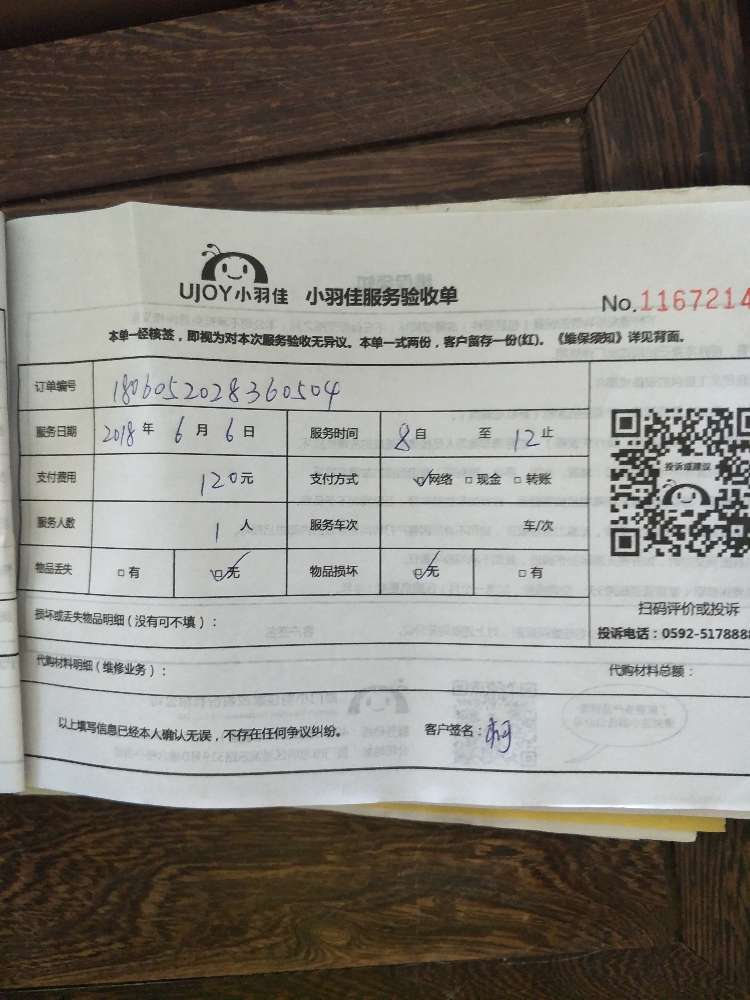 UJOY小羽佳 小羽佳服务验收单
No.1167214
本单一经核签，即视为对本次服务验收无异议。本单一式两份，客户留存一份(红)。《维保须知》详见背面。
订单编号 1806052028360504
服务日期 2018年 6月 6日 服务时间 8自 至 12止
支付费用 120元 支付方式 ☑网络 □现金 □转账
服务人数 1人 服务车次 车/次
物品丢失 □有 ☑无 物品损坏 ☑无 □有
投诉或建议
扫码评价或投诉
投诉电话：0592-5178888
损坏或丢失物品明细（没有可不填）：
代购材料明细（维修业务）： 代购材料总额：
以上填写信息已经本人确认无误，不存在任何争议纠纷。 客户签名：